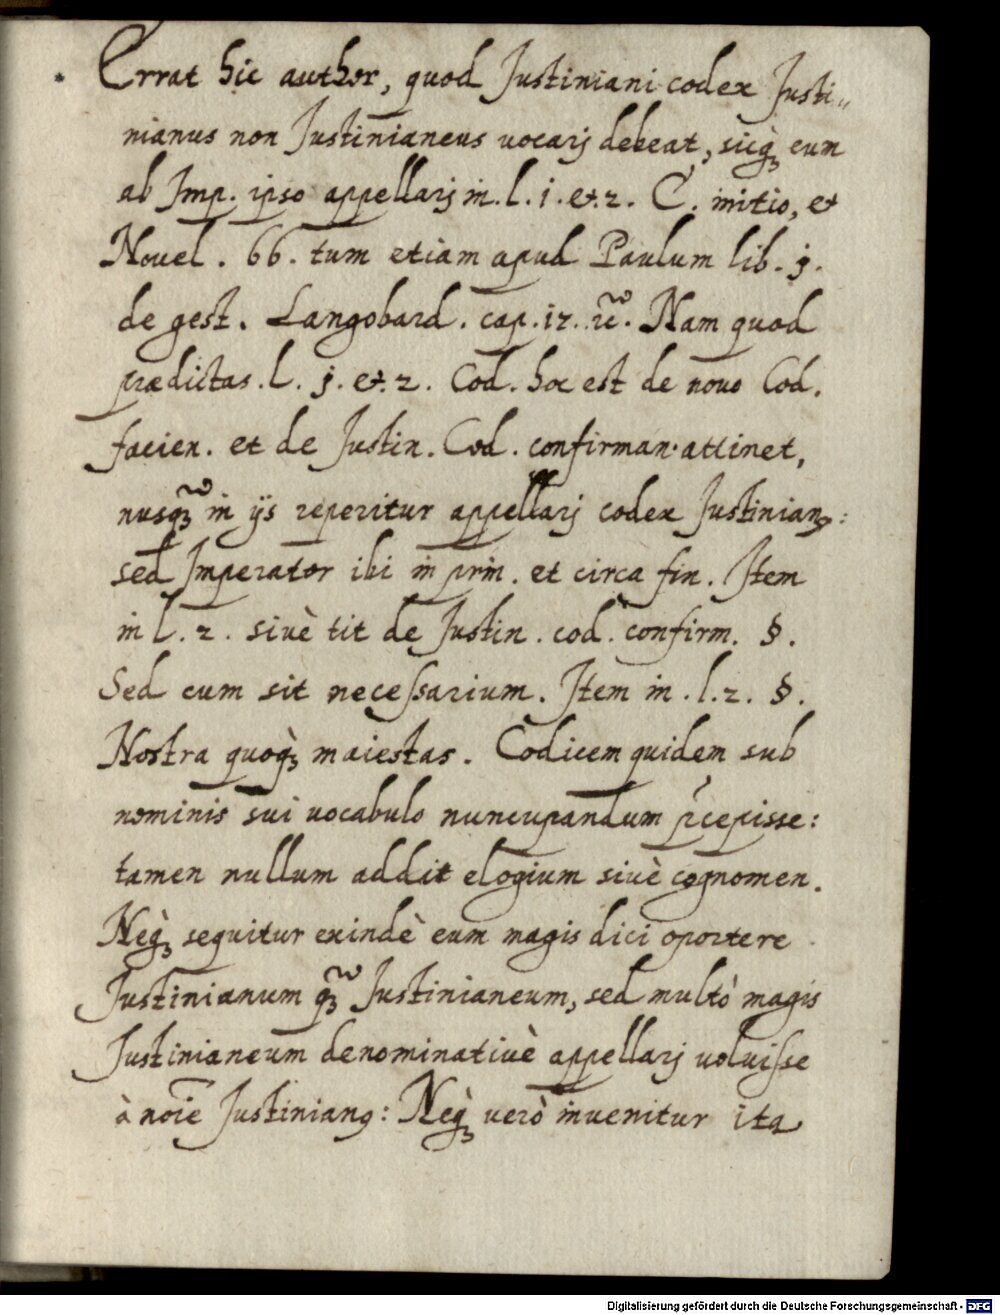 * Errat hic author, quod Justiniani codex Justi-
nianus non Justinianeus vocarj debeat, sicq₃ eum
ab Imp. ipso appellarj in. l. 1. et. 2. C. initio, et
Novel. 66. tum etiam apud Paulum lib. j.
de gest. Langobard. cap. 12. rc. Nam quod
prædictas. l. j. et. 2. Cod. hoc est de novo Cod.
facien. et de Justin. Cod. confirman. attinet,
nusq₃ in ijs reperitur appellarj codex Justinianꝰ:
sed Imperator ibi in prin. et circa fin. Item
in l. 2. sivè tit de Justin. cod. confirm. §.
Sed cum sit necessarium. Item in. l. 2. §.
Nostra quoq₃ maiestas. Codicem quidem sub
nominis sui vocabulo nuncupandum p̄cepisse:
tamen nullum addit elogium sivè cognomen.
Neq₃ sequitur exindè eum magis dici oportere
Justinianum q₃ Justinianeum, sed multò magis
Justinianeum denominativè appellarj voluisse
à noīe Justinianꝰ: Neq₃ verò invenitur ita
Digitalisierung gefördert durch die Deutsche Forschungsgemeinschaft - DFG